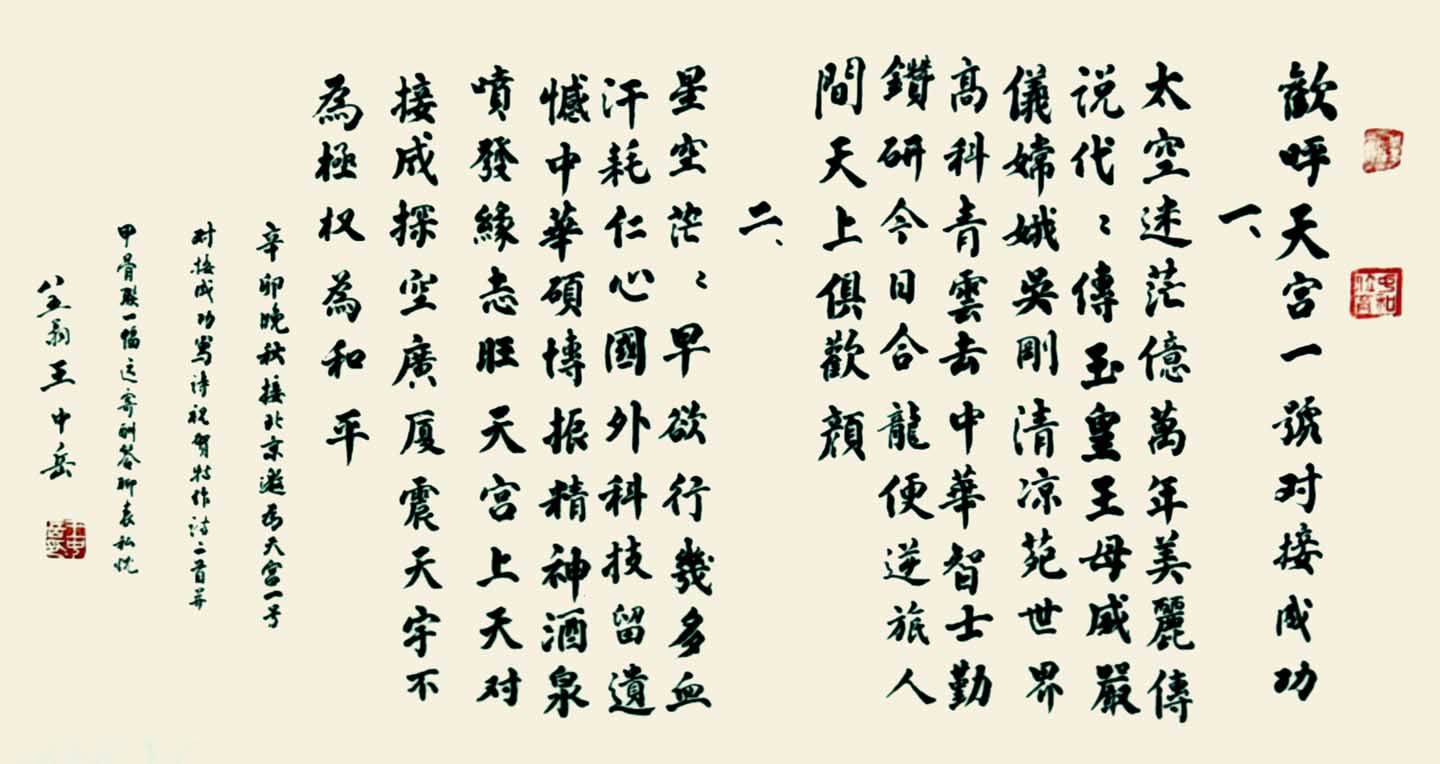 歡呼天宫一號对接成功
一、
太空迷茫億萬年美麗傳
说代〻傳玉皇王母威嚴
儀嫦娥吳剛清凉苑世界
高科青雲去中華智士勤
鑽研今日合龍便逆旅人
間天上俱歡顔
二、
星空茫〻早欲行幾多血
汗耗仁心國外科技留遺
憾中華碩博振精神酒泉
噴發緣志旺天宫上天对
接成探空廣厦震天宇不
為極权為和平
辛卯晚秋接北京邀為天宫一号
对接成功寫诗祝贺特作诗二首并
甲骨联一幅远寄酬答聊表私忱
翁王中岳